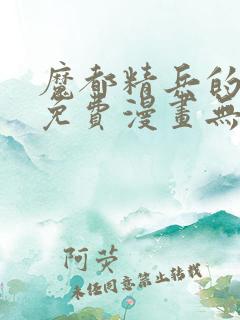 魔都精兵的
免費漫畫無
阿荧
未经同意禁止转载